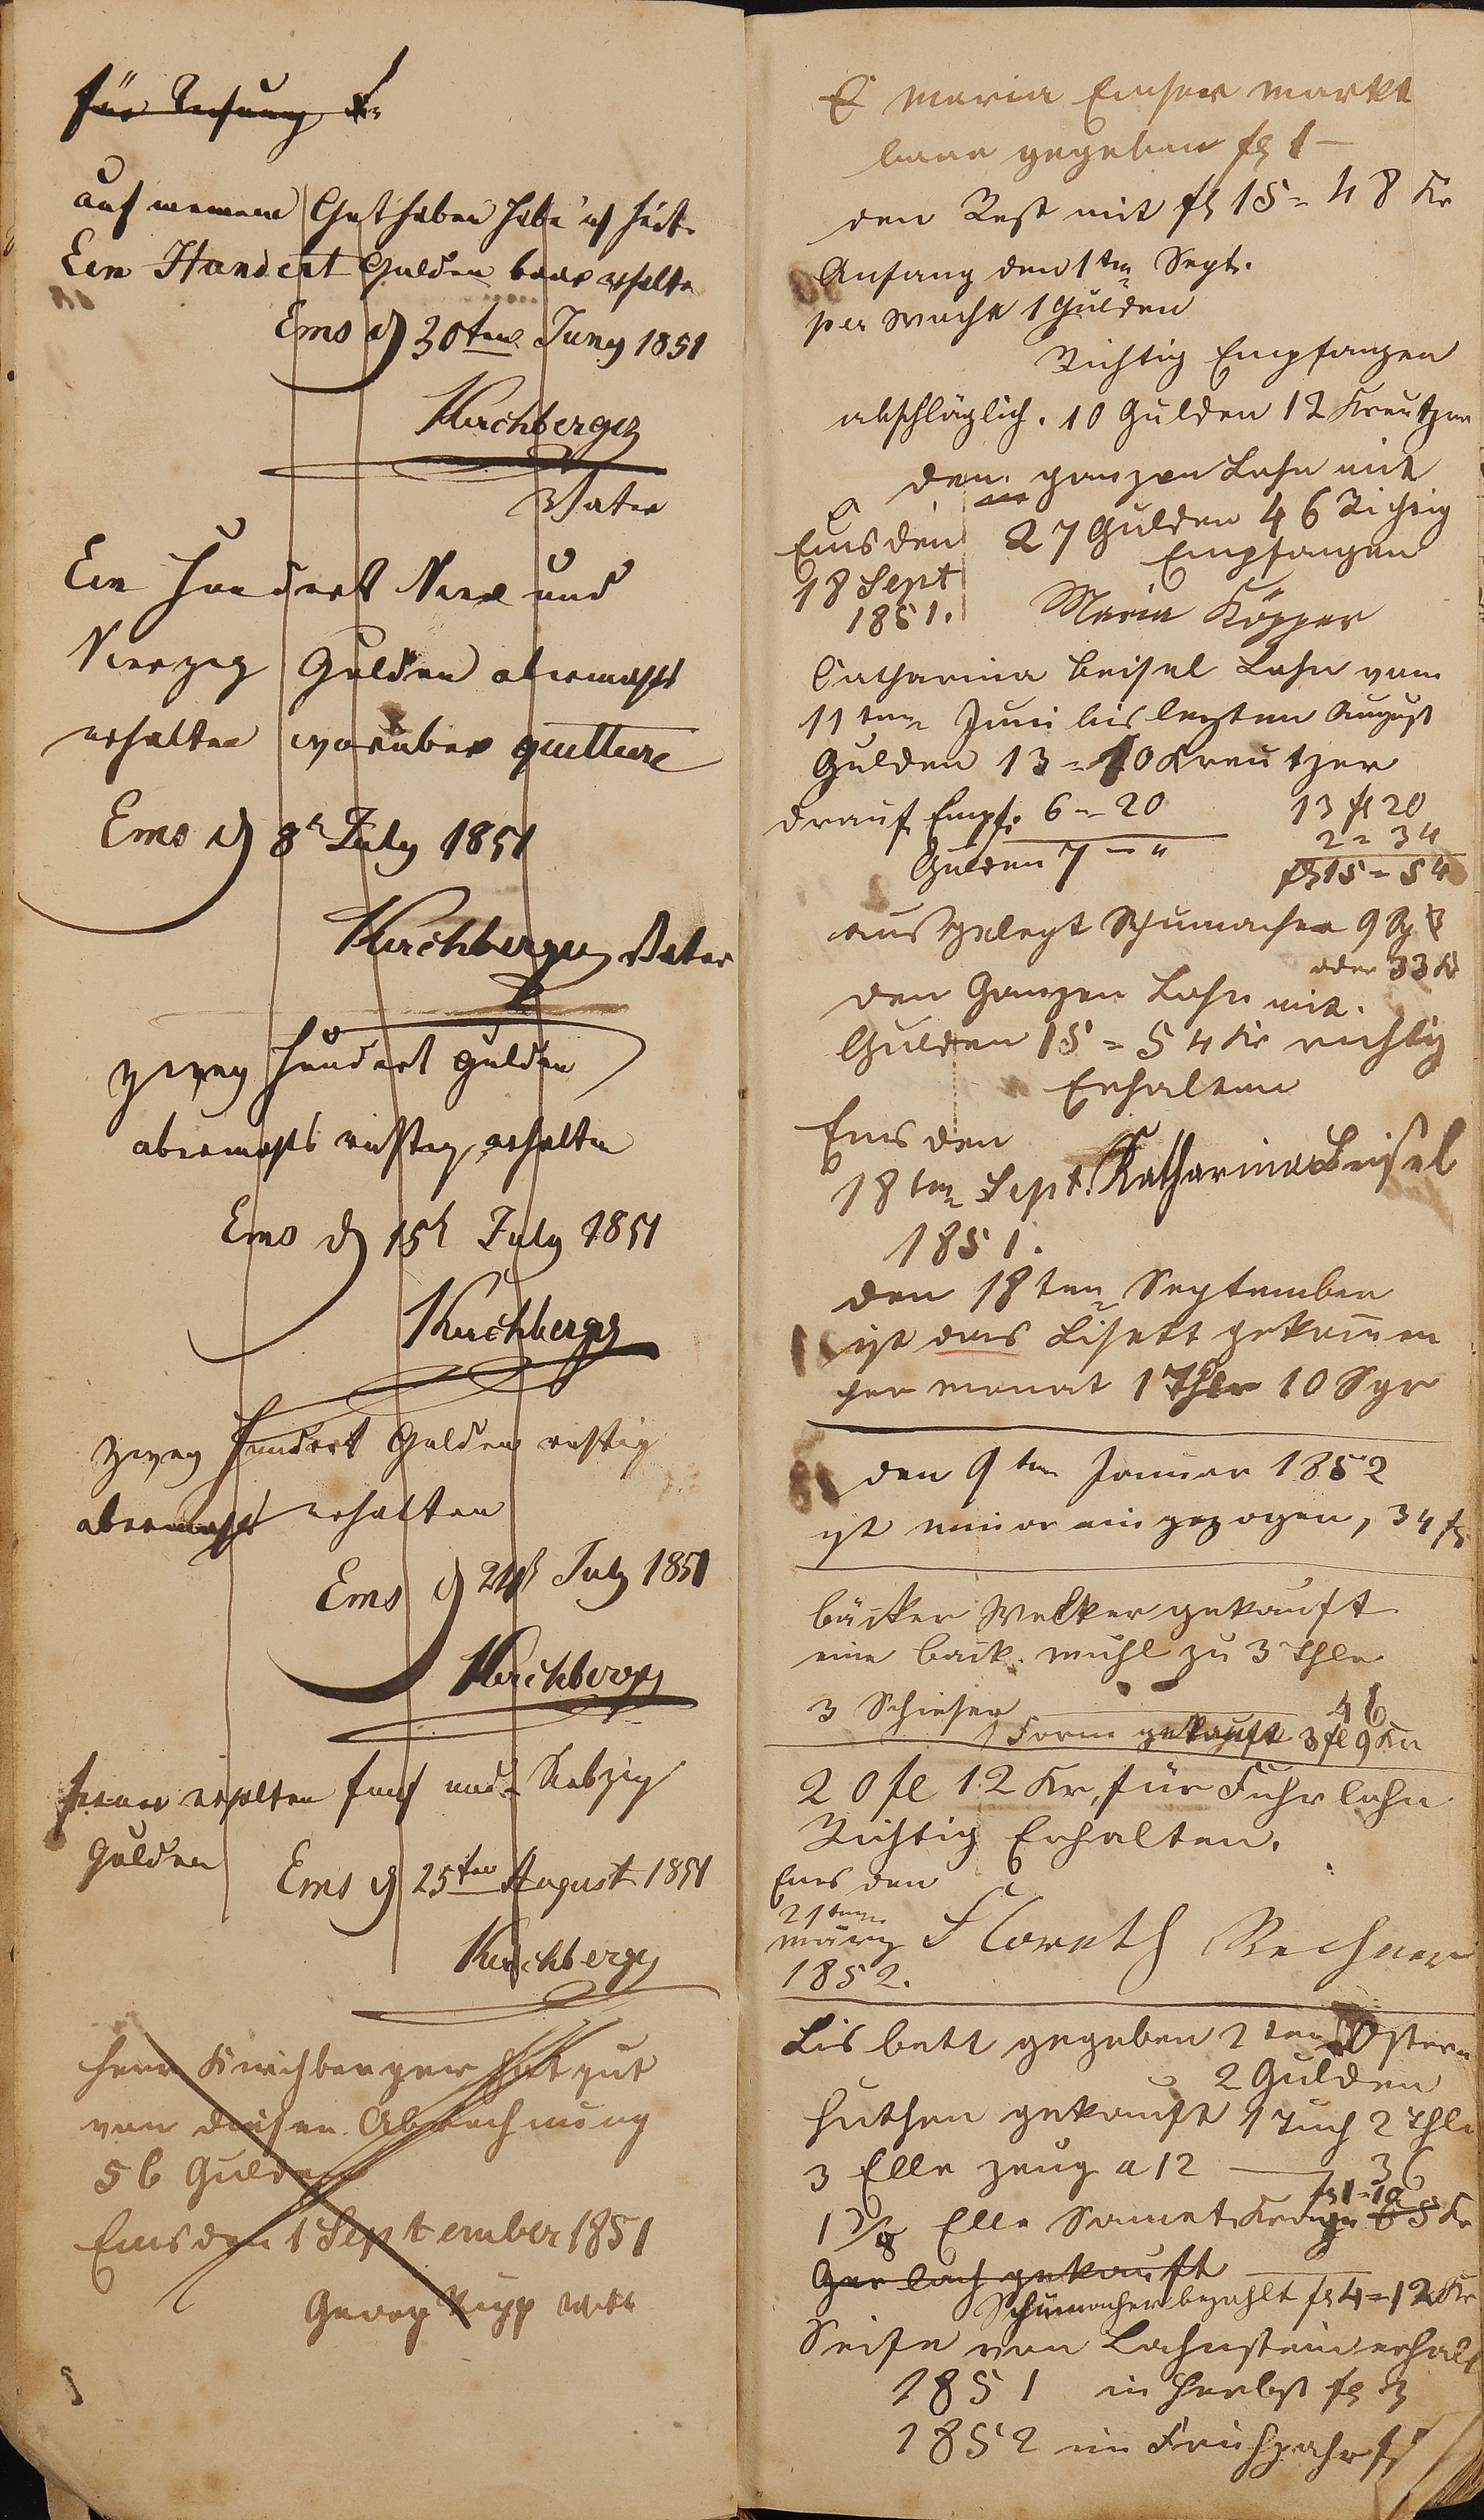 auf meinem Guthaben habe ich heute
Ein Hundert Gulden baar erhalten
Ems d 30ten Juny 1851
Kirchberger
Vater
Ein Hundert Vier und
Vierzig Gulden abermahls
erhalten worüber quittire
Ems d 8t July 1851
Kirchberger Vater
zwey Hundert Gulden
abermahls richtig erhalten
Ems d 15t July 1851
Kirchberger
zwey Hundert Gulden richtig
abermahls erhalten
Ems d 24t July 1851
Kirchberger
ferner erhalten fünf und Siebzig
Gulden
Ems d 25ten August 1851
Kirchberger
Herr Kirchberger hat gut
von dieser Abrechnung
56 Gulden
Ems den 1 September 1851
Georg Rupp
Maria Emser Markt
baar gegeben fl 1 –
den Rest mit fl 15 = 48 Kr
Anfang den 1ten Sept.
per Woche 1 Gulden
Richtig Empfangen
abschläglich. 10 Gulden 12 Kreutzer
den ganzen Lohn mit
27 Gulden 46 Richtig
Empfangen
Ems den
18 Sept
1851.
Maria Köpper
Catharina Beisel Lohn vom
11ten Juni bis lezten August
Gulden 13 = 20 Kreutzer
drauf Empf. 6 = 20
Gulden 7 – "
13 fl 20
2 = 34
fl 15 = 54
ausgelegt Schumacher 9 Sg
oder 33 Kr
den Ganzen Lohn mit.
Gulden 15 = 54 Kr richtig
Erhalten
Ems den
18ten Sept. Katharina Beisel
1851.
den 18ten September
ist das Lisett gekommen
per monat 1 Thlr 10 Sgr
den 9ten Januar 1852
ist eingezogen, 34 fl
bäcker Welker gekauft
eine back. muhl zu 3 Thlr
3 Schieser 46
1 Form gekauft 3 fl 9 Kr
20 fl 12 Kr, für Fuhrlohn
Richtig Erhalten.
Ems den
21ten
märz
1852.
Lisbett gegeben 2ten Ostern
2 Gulden
gekauft 1 Tuch 2 Thlr
3 Elle zeug a 12 — 36
fl 1 = 10
Elle Samet Kragen 65 Kr
Gerlach gekauft
Schumacher bezahlt fl 4 = 12 Kr
Seife von Lahnstein erhalt
1851 im Herbst fl 3
1852 im Frühjahr fl